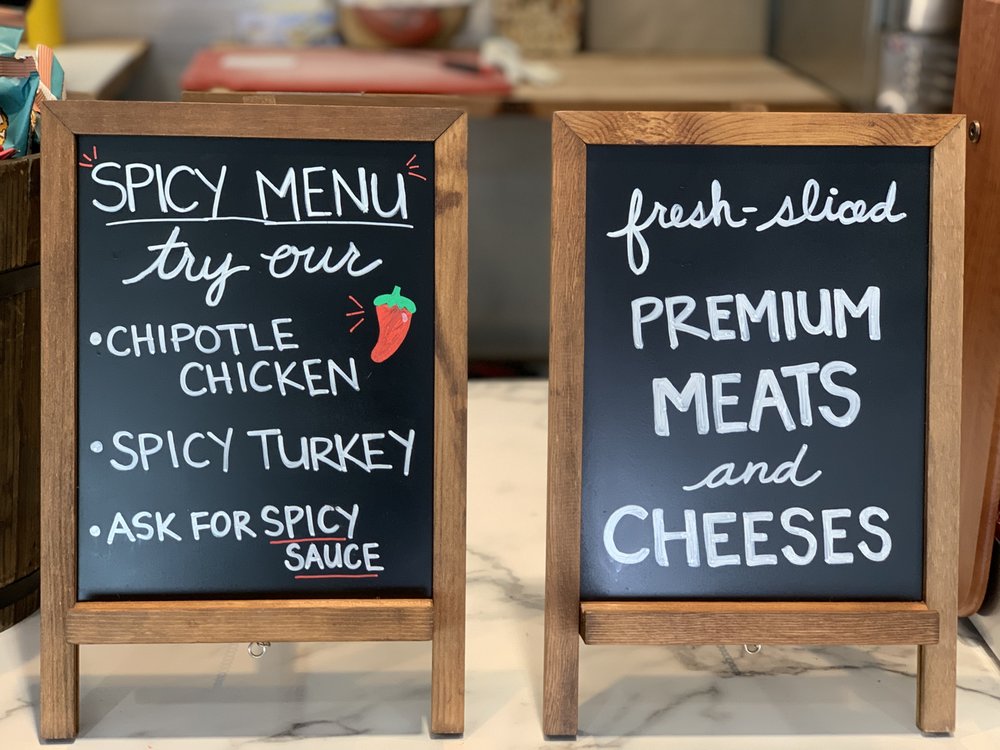 SPICY MENU
try our
• CHIPOTLE
CHICKEN
• SPICY TURKEY
• ASK FOR SPICY
SAUCE
fresh-sliced
PREMIUM
MEATS
and
CHEESES